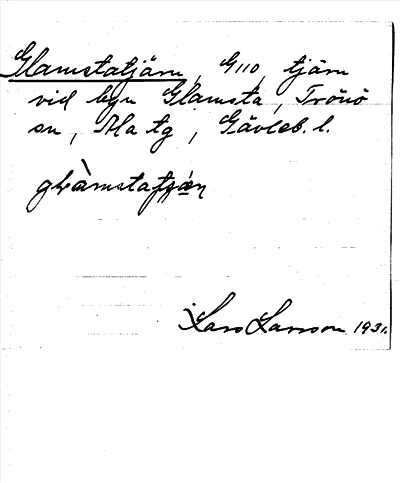 Glamstatjärn, G110, tjärn
vid byn Glamsta, Trönö
sn, Ala tg, Gävleb. l.
glàmstatjæ̀n
Lars Larsson 1931.